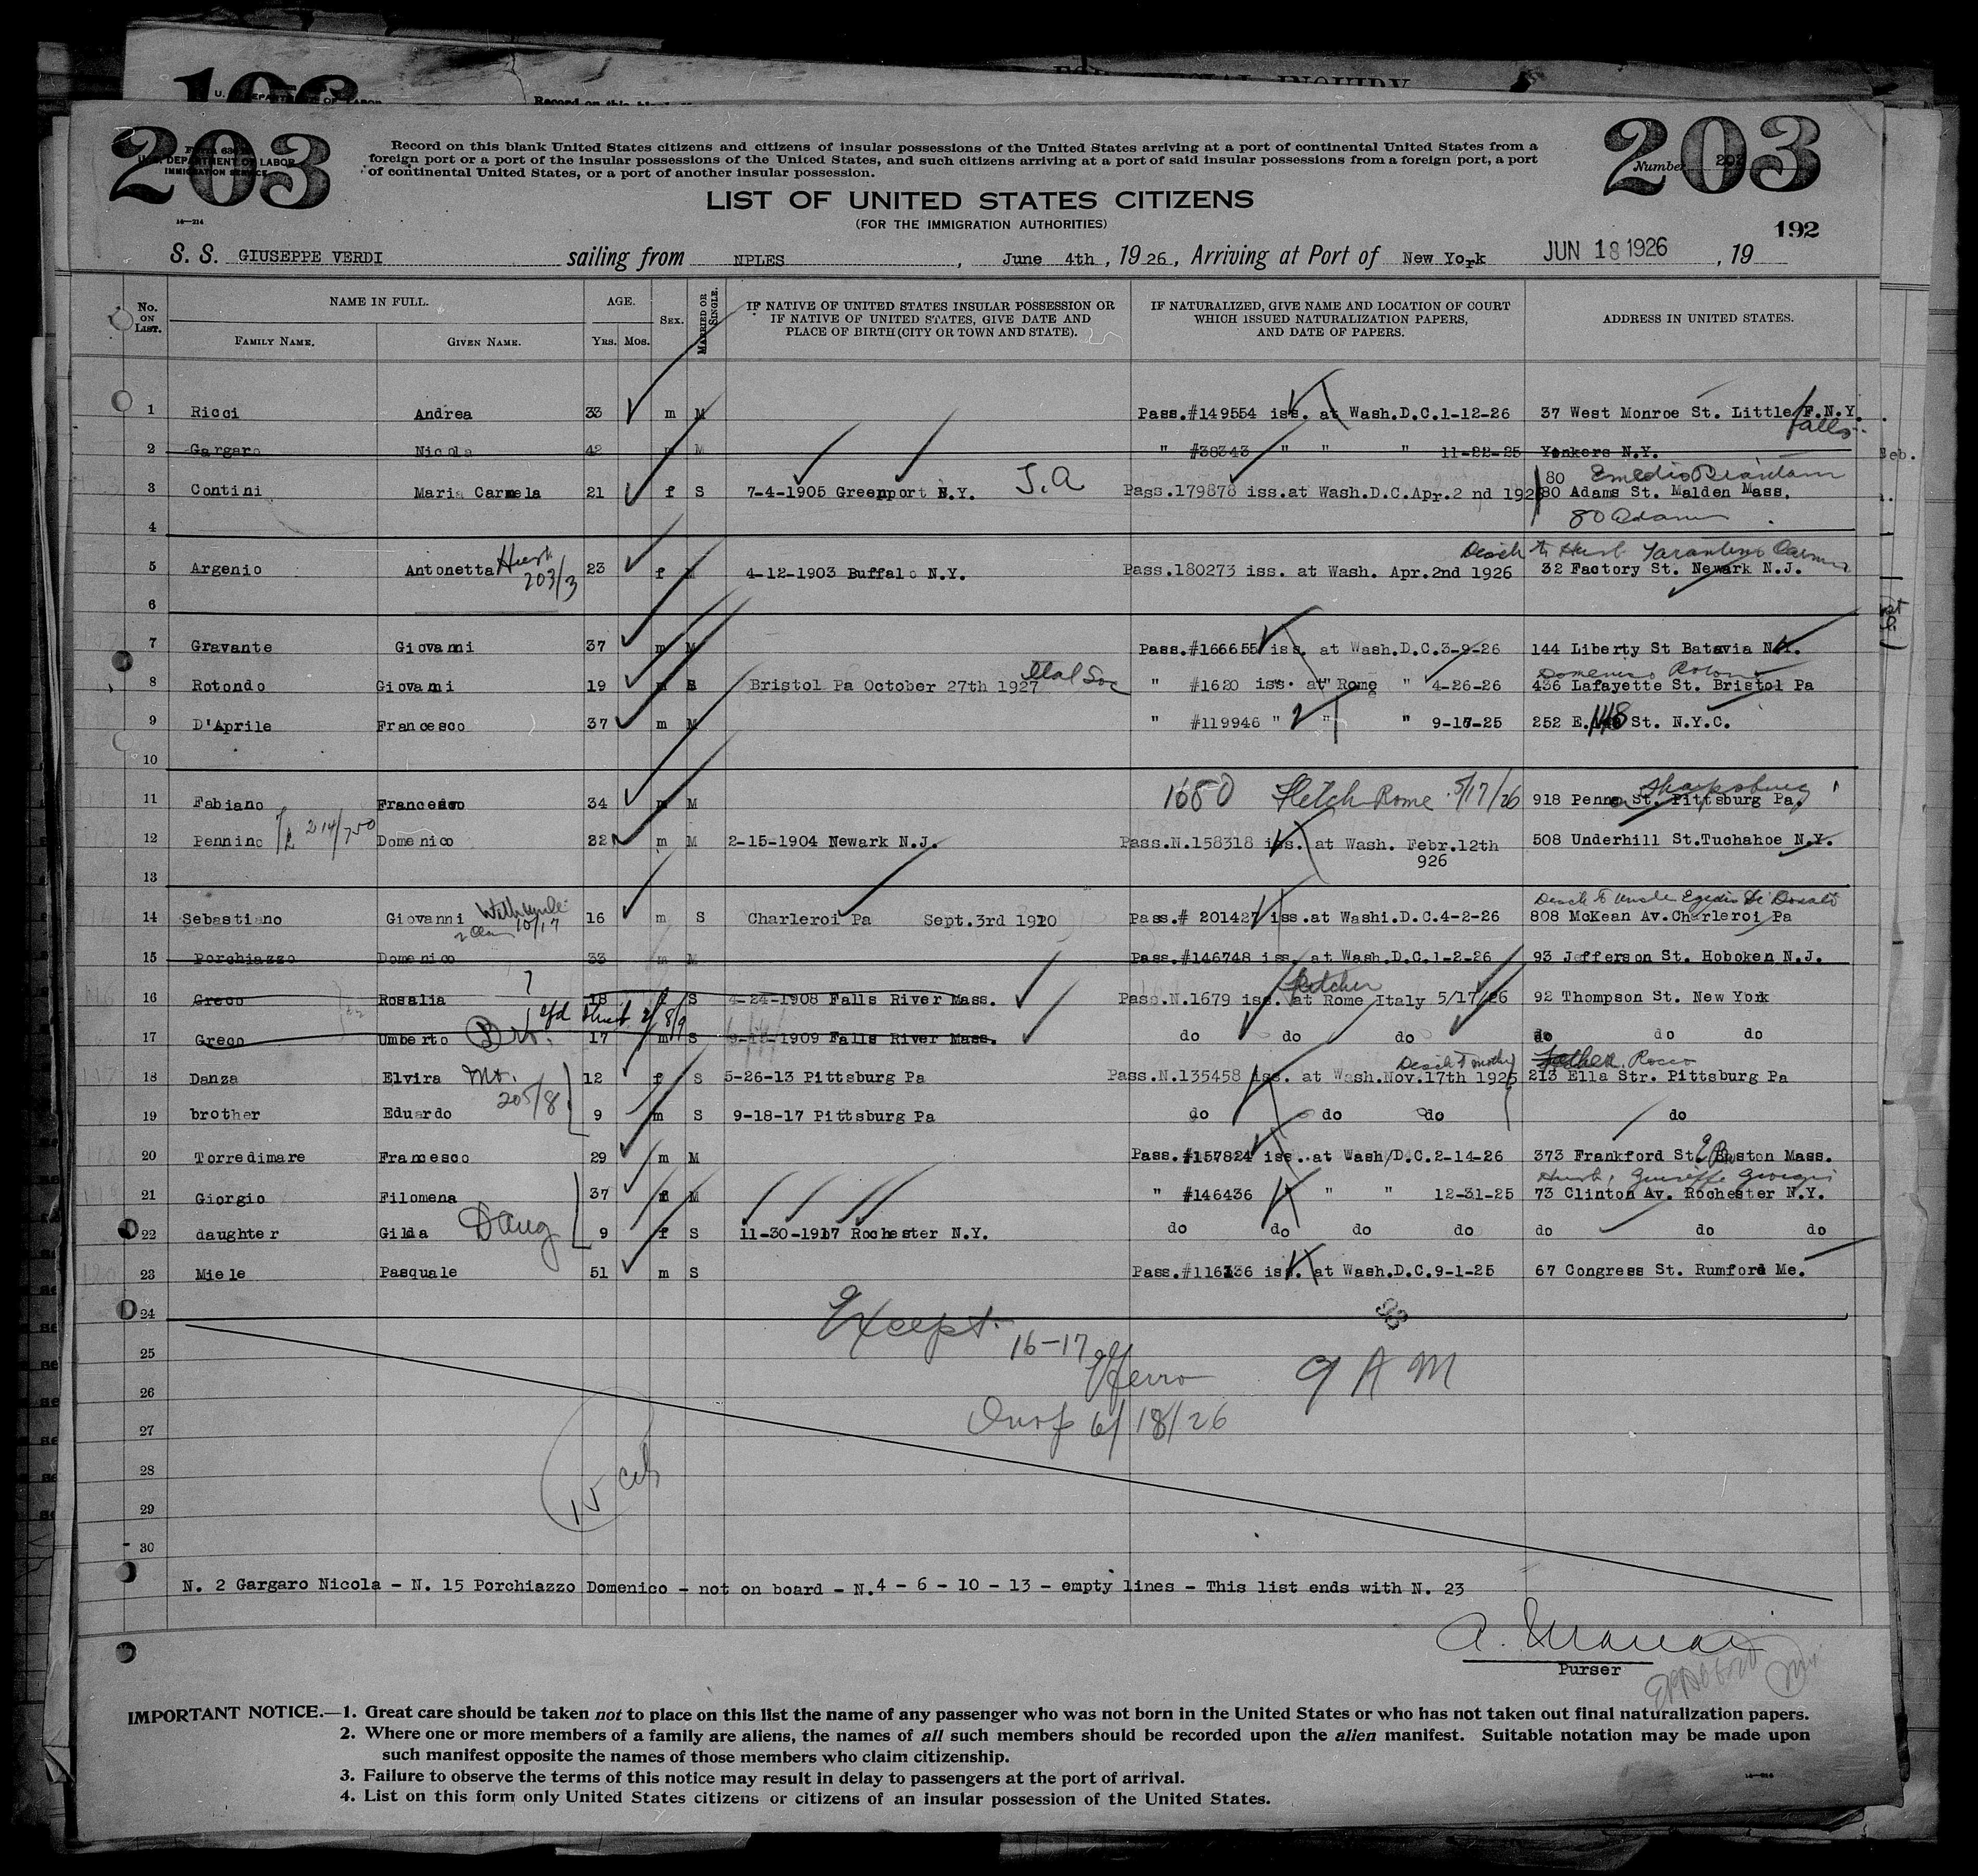 FOR SPECIAL INQUIRY
203
203
U. S. DEPARTMENT OF LABOR
IMMIGRATION SERVICE
Number 203
14—214
Record on this blank United States citizens and citizens of insular possessions of the United States arriving at a port of continental United States from a
foreign port or a port of the insular possessions of the United States, and such citizens arriving at a port of said insular possessions from a foreign port, a port
of continental United States, or a port of another insular possession.
LIST OF UNITED STATES CITIZENS
(FOR THE IMMIGRATION AUTHORITIES)
192
S. S. GIUSEPPE VERDI sailing from NPLES , June 4th , 1926 , Arriving at Port of New York JUN 18 1926 , 19
No. ON LIST. NAME IN FULL. AGE. SEX. MARRIED OR SINGLE. IF NATIVE OF UNITED STATES INSULAR POSSESSION OR IF NATIVE OF UNITED STATES, GIVE DATE AND PLACE OF BIRTH (CITY OR TOWN AND STATE). IF NATURALIZED, GIVE NAME AND LOCATION OF COURT WHICH ISSUED NATURALIZATION PAPERS, AND DATE OF PAPERS. ADDRESS IN UNITED STATES.
FAMILY NAME. GIVEN NAME. YRS. MOS.
1 Ricci Andrea 33 m M Pass.#149554 iss. at Wash.D.C.1-12-26 37 West Monroe St. Little F.N.Y.
Falls
2 Gargaro Nicola 42 m M " #38343 " " " 11-22-25 Yonkers N.Y.
3 Contini Maria Carmela 21 f S 7-4-1905 Greenport N.Y. J.A Pass.179878 iss.at Wash.D.C.Apr.2 nd 1926 80 Adams St. Malden Mass.
80 Adams
4
5 Argenio Antonetta 203/3 23 f M 4-12-1903 Buffalo N.Y. Pass.180273 iss. at Wash. Apr.2nd 1926 32 Factory St. Newark N.J.
6
7 Gravante Giovanni 37 m M Pass.#166655 iss. at Wash.D.C.3-9-26 144 Liberty St Batavia N.Y.
8 Rotondo Giovanni 19 m S Bristol Pa October 27th 1927 " #1620 iss. at Rome " 4-26-26 436 Lafayette St. Bristol Pa
9 D'Aprile Francesco 37 m M " #119946 " " " 9-16-25 252 E. 148 St. N.Y.C.
10
11 Fabiano Francesco 34 m M 1680 Fletch Rome 5/17/26 918 Penn St. Pittsburg Pa.
Sharpsburg
12 Pennino 214/750 Domenico 22 m M 2-15-1904 Newark N.J. Pass.N.158318 iss. at Wash. Febr.12th 926 508 Underhill St.Tuchahoe N.Y.
13
14 Sebastiano Giovanni 16 m S Charleroi Pa Sept.3rd 1910 Pass.# 201427 iss.at Washi.D.C.4-2-26 808 McKean Av.Charleroi Pa
15 Porchiazzo Domenico 33 m M Pass.#146748 iss. at Wash.D.C.1-2-26 93 Jefferson St. Hoboken N.J.
16 Greco Rosalia 18 f S 4-24-1908 Falls River Mass. Pass.N.1679 iss. at Rome Italy 5/17/26 92 Thompson St. New York
17 Greco Umberto Bro. 17 m S 1909 Falls River Mass. do do do do do do
18 Danza Elvira 12 f S 5-26-13 Pittsburg Pa Pass.N.135458 iss. at Wash.Nov.17th 1925 213 Ella Str. Pittsburg Pa
Father Rocco
205/8
19 brother Eduardo 9 m S 9-18-17 Pittsburg Pa do do do do
20 Torredimare Francesco 29 m M Pass.#157824 iss. at Wash/D.C.2-14-26 373 Frankford St. Boston Mass.
21 Giorgio Filomena 37 f M " #146436 " " " 12-31-25 73 Clinton Av. Rochester N.Y.
22 daughter Gilda Daug 9 f S 11-30-1917 Rochester N.Y. do do do do do do do
23 Miele Pasquale 51 m S Pass.#116336 iss. at Wash.D.C.9-1-25 67 Congress St. Rumford Me.
24
Except
25
16-17
9 A M
26
27
6/18/26
28
29
30
N. 2 Gargaro Nicola - N. 15 Porchiazzo Domenico - not on board - N.4 - 6 - 10 - 13 - empty lines - This list ends with N. 23
Purser
IMPORTANT NOTICE.—1. Great care should be taken not to place on this list the name of any passenger who was not born in the United States or who has not taken out final naturalization papers.
2. Where one or more members of a family are aliens, the names of all such members should be recorded upon the alien manifest. Suitable notation may be made upon
such manifest opposite the names of those members who claim citizenship.
3. Failure to observe the terms of this notice may result in delay to passengers at the port of arrival.
4. List on this form only United States citizens or citizens of an insular possession of the United States.